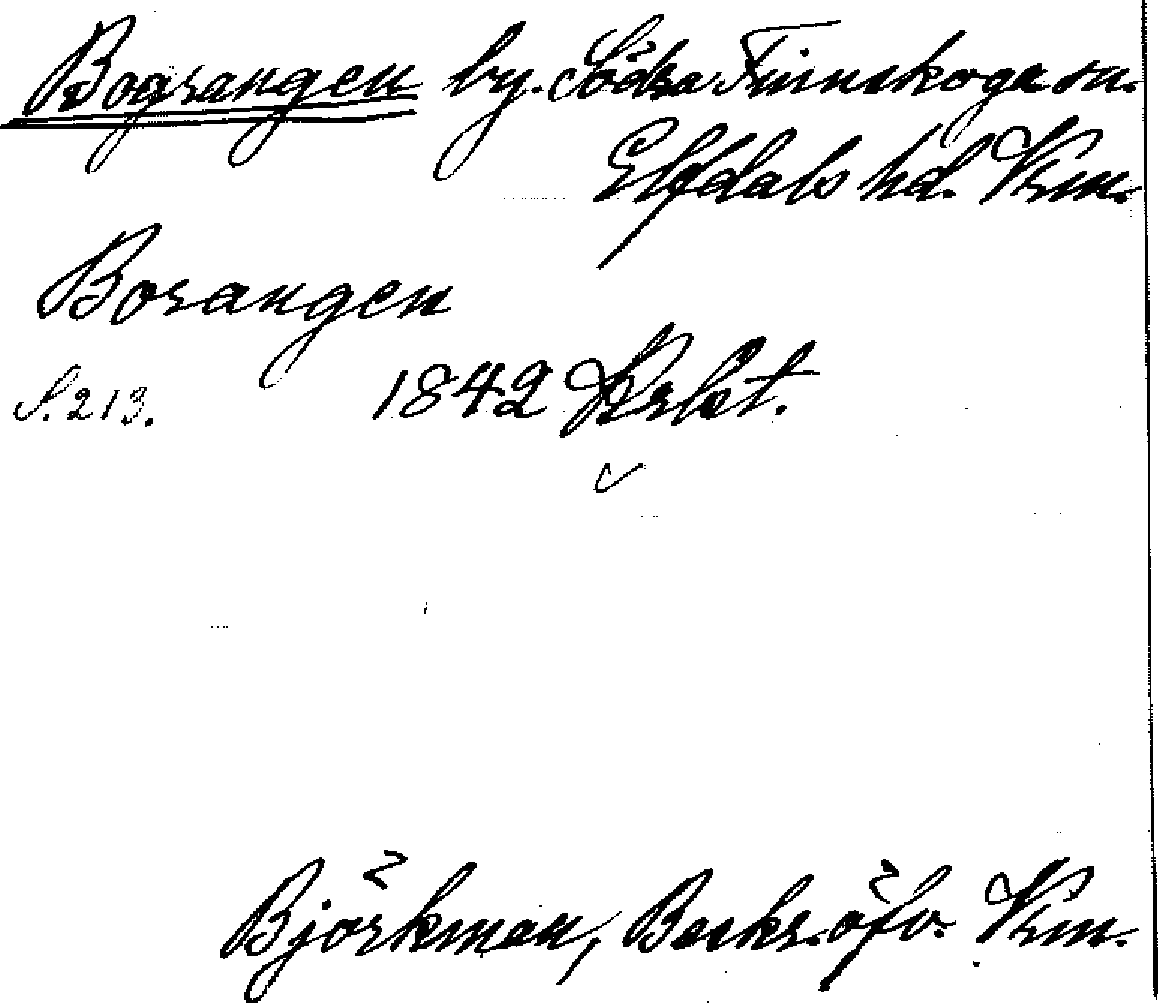 Bograngen by. Södra Finnskoga sn.
Elfdals hd. Vrm.
Borangen
S. 213. 1842 Krbt.
Björkman, Beskr. öfv. Vrm.